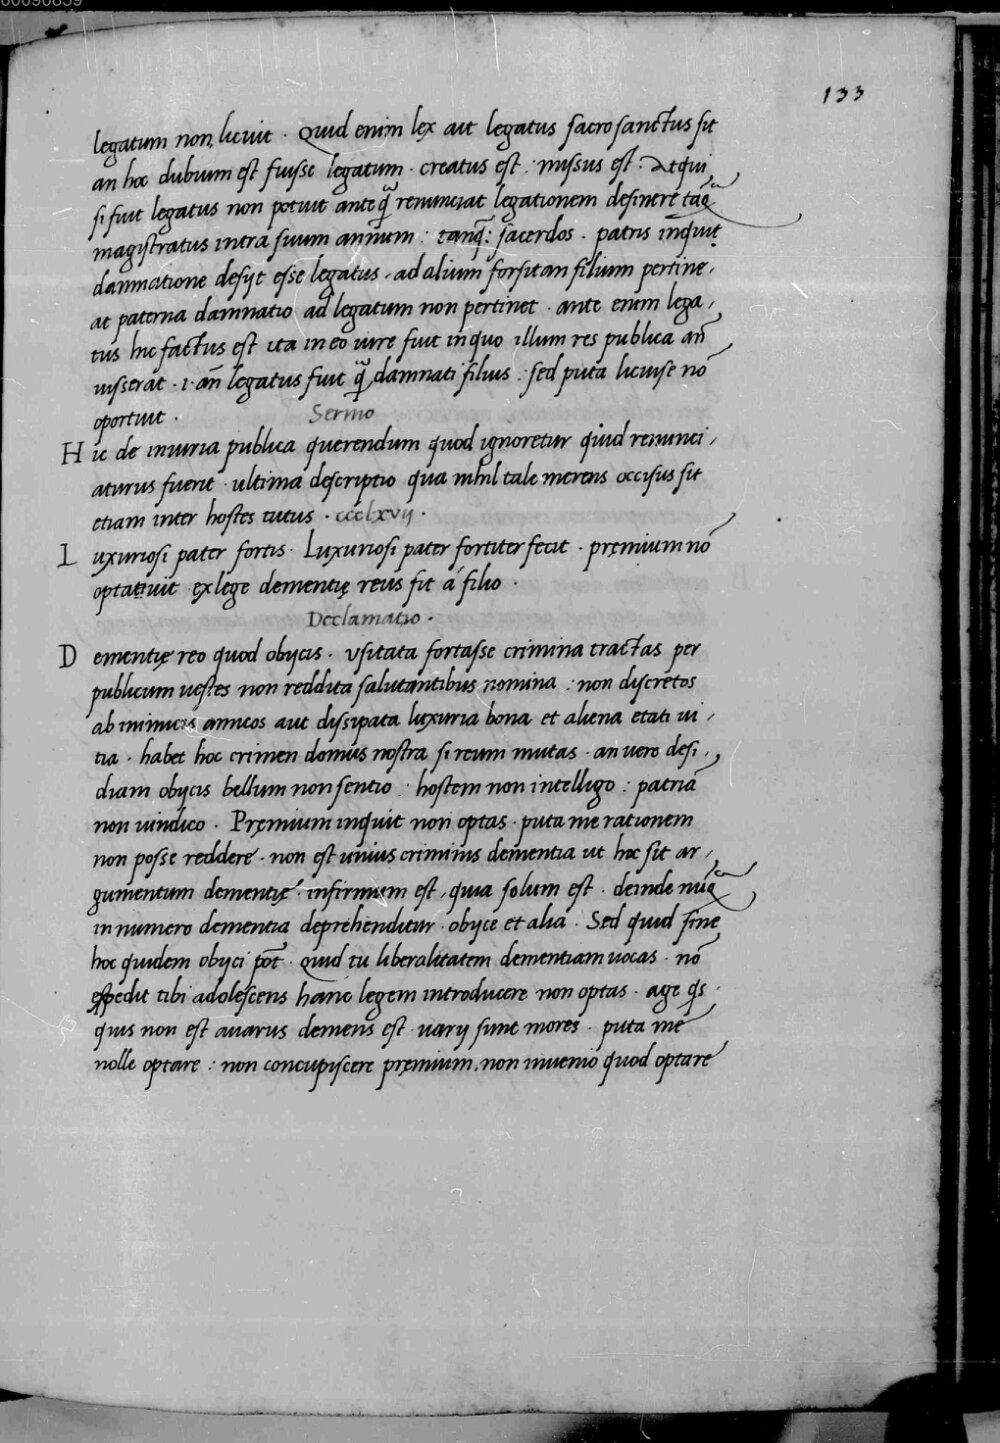 00090859
133
legatum non licuit · Quid enim lex ait legatus sacrosanctus sit
an hoc dubium est fuisse legatum · creatus est : missus est : Atqui
si fuit legatus non potuit anteq̃ renunciat legationem desinere taq̃
magistratus intra suum annum : tanq̃ : sacerdos · patris inquit
damnatione desijt esse legatus , ad alium forsitan filium pertine ,
at paterna damnatio ad legatum non pertinet · ante enim lega ,
tus hic factus est ita in eo iure fuit in quo illum res publica añ
uisserat · i · añ legatus fuit q̃ damnati filius : sed puta licuise nõ
oportuit ·
Sermo
Hic de iniuria publica querendum quod ignoretur quid renunci ,
aturus fuerit · ultima descriptio qua nihil tale merens occisus sit
etiam inter hostes tutus · ccclxvij ·
Luxuriosi pater fortis · Luxuriosi pater fortiter fecit · pręmium nõ
optatiuit ex lege dementię reus fit á filio ·
Declamatio ·
Dementię reo quod obijcis · usitata fortasse crimina tractas per
publicum uestes non reddita salutantibus nomina : non discretos
ab inimicis amicos aut dissipata luxuria bona et aliena etati ui ,
tia · habet hoc crimen domus nostra si reum mutas · an uero desi ,
diam obijcis bellum non sentio : hostem non intelligo : patriã
non uindico · Pręmium inquit non optas · puta me rationem
non posse reddere · non est unius criminis dementia ut hoc sit ar ,
gumentum dementię · infirmum est , quia solum est · deinde nuq̃
in numero dementia deprehenditur · obijce et alia · Sed quid sine
hoc quidem obijci põt · quid tu liberalitatem dementiam uocas · nõ
expedit tibi adolescens hanc legem introducere non optas · age q̃s ·
quis non est auarus demens est · uarij sunt mores · puta me
nolle optare : non concupiscere pręmium , non inuenio quod optare